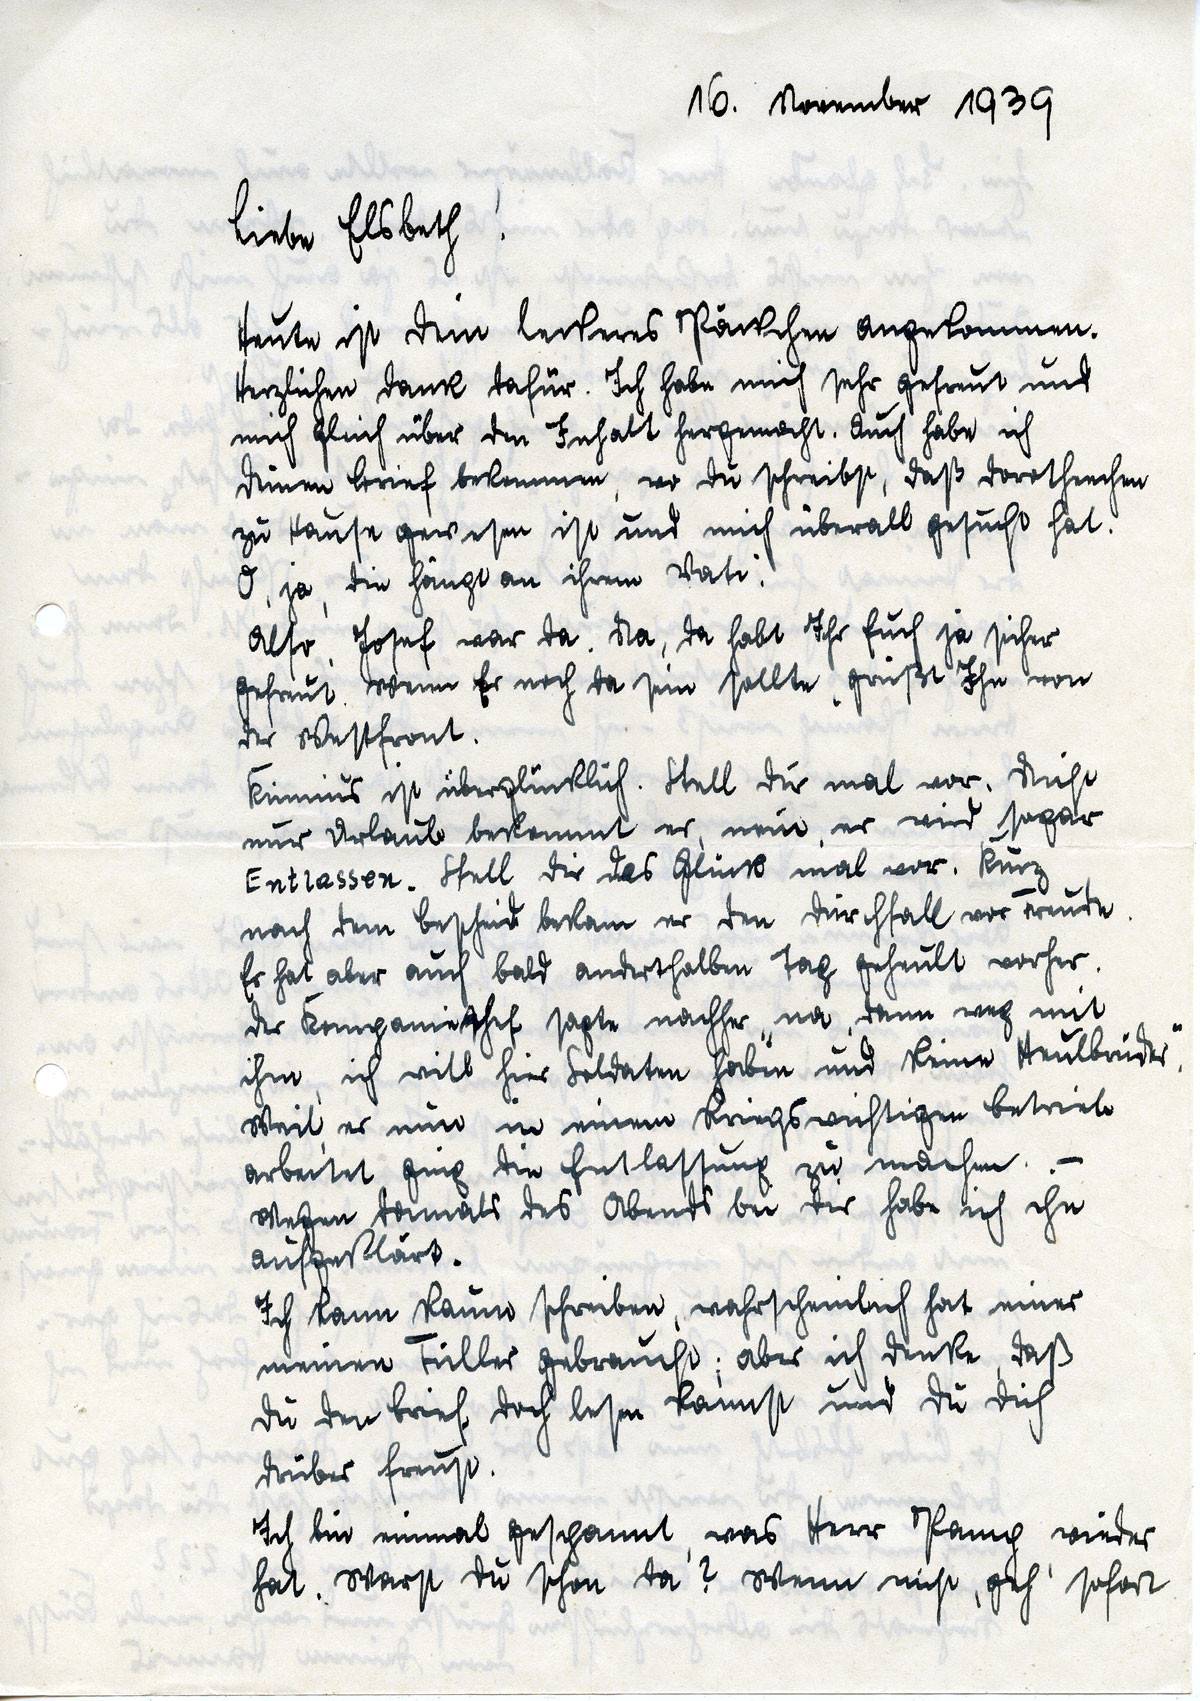 16. November 1939
Liebe Elsbeth!
Heute ist dein leckeres Päckchen angekommen.
Herzlichen Dank dafür. Ich habe mich sehr gefreut und
mich gleich über den Inhalt hergemacht. Auch habe ich
deinen Brief bekommen, wo du schreibst, daß Dorotheechen
zu Hause gewesen ist und mich überall gesucht hat.
O, ja, die hängt an ihrem Vati.
Also, Josef war da. Na, da habt Ihr Euch ja sicher
gefreut. Wenn Er noch da sein sollte, grüßt Ihn von
der Westfront.
ist überglücklich. Stell dir mal vor. Nicht
nur Urlaub bekommt er, nein, er wird sogar
Entlassen. Stell dir das Glück mal vor. Kurz
nach dem Bescheid bekam er den Durchfall vor Freude.
Er hat aber auch bald anderthalben Tag geheult vorher.
Der Kompaniechef sagte nachher „na, dann weg mit
ihm, ich will hier Soldaten haben und keine Heulbrüder".
Weil er nun in einem Kriegswichtigen Betrieb
arbeitet ging die Entlassung zu machen. –
Wegen damals des Abends bei dir habe ich ihn
aufgeklärt.
Ich kann kaum schreiben, wahrscheinlich hat einer
meinen Füller gebraucht; aber ich denke, daß
du den Brief doch lesen kannst und du dich
drüber freust.
Ich bin einmal gespannt, was Herr Pamp wieder
hat. Warst du schon da? Wenn nicht, geh' sofort